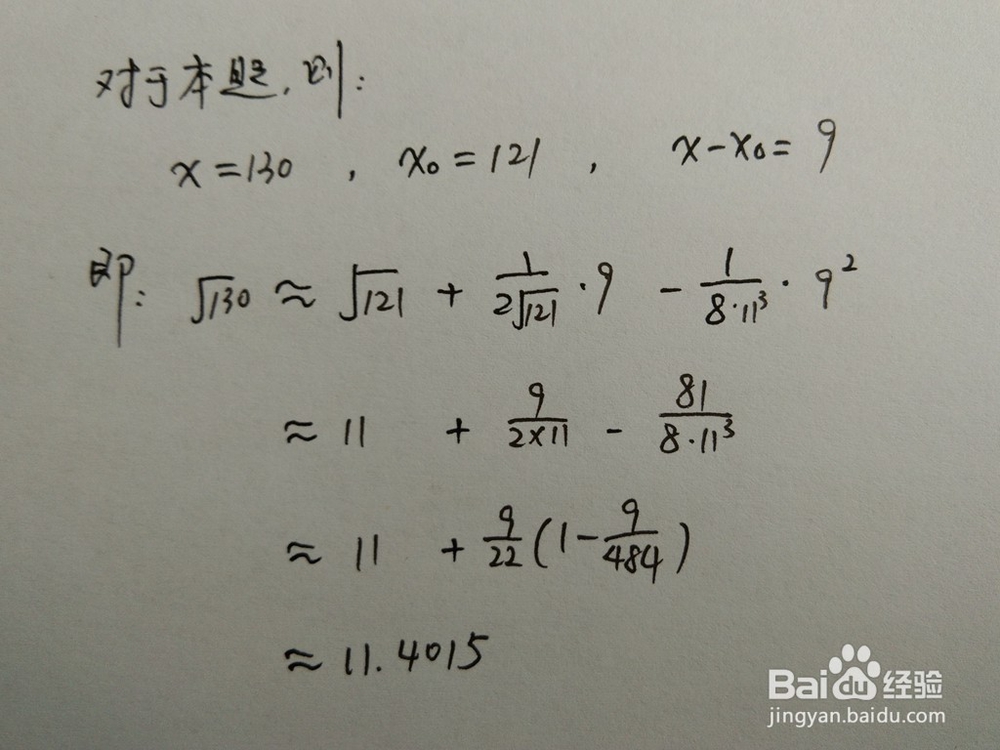 对于本题,则:
x=130 , x₀=121 , x-x₀=9
即: √130 ≈ √121 + 1/(2√121) · 9 - 1/(8·11³) · 9²
≈ 11 + 9/(2×11) - 81/(8·11³)
≈ 11 + 9/22 (1 - 9/484)
≈ 11.4015
Baidu 经验
jingyan.baidu.com